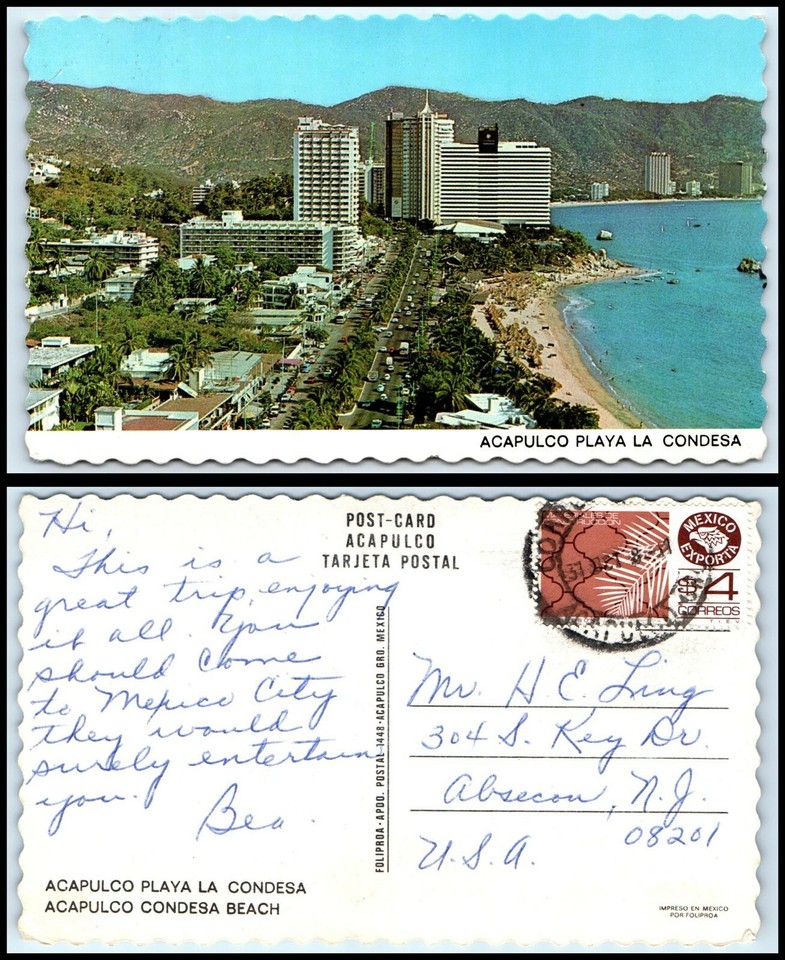 ACAPULCO PLAYA LA CONDESA
POST-CARD
ACAPULCO
TARJETA POSTAL
Hi,
This is a
great trip, enjoying
it all. You
should come
to Mexico City
they would
surely entertain
you.
Bea.
ACAPULCO PLAYA LA CONDESA
ACAPULCO CONDESA BEACH
FOLIPROA-APDO. POSTAL 1448-ACAPULCO GRO. MEXICO
MEXICO
EXPORTA
$4
CORREOS
T.I.E.V.
31 OCT
Mr. H E. Ling
304 S. Key Dr.
Absecon, N.J.
08201
U.S.A.
IMPRESO EN MEXICO
POR FOLIPROA